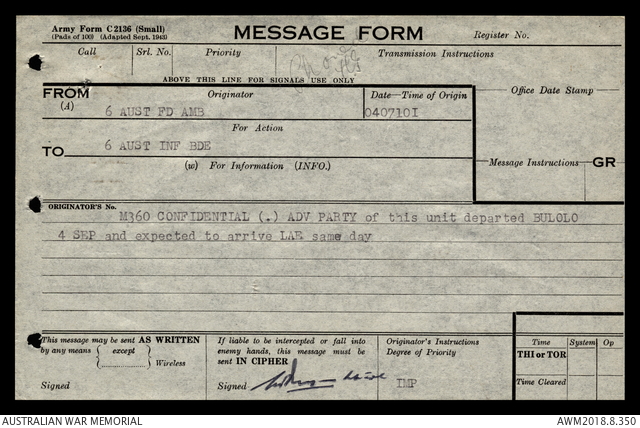 Army Form C 2136 (Small)
(Pads of 100) (Adapted Sept. 1943)
MESSAGE FORM
Register No.
Call Srl. No. Priority Transmission Instructions
ABOVE THIS LINE FOR SIGNALS USE ONLY
FROM Originator Date—Time of Origin
(A)
Office Date Stamp
6 AUST FD AMB 040710I
For Action
TO 6 AUST INF BDE
(w) For Information (INFO.)
Message Instructions GR
ORIGINATOR'S No.
M360 CONFIDENTIAL (.) ADV PARTY of this unit departed BULOLO
4 SEP and expected to arrive LAE same day
This message may be sent AS WRITTEN
by any means { except }
Wireless
Signed
If liable to be intercepted or fall into
enemy hands, this message must be
sent IN CIPHER
Signed
Originator's Instructions
Degree of Priority
IMP
Time System Op
THI or TOR
Time Cleared
AUSTRALIAN WAR MEMORIAL AWM2018.8.350